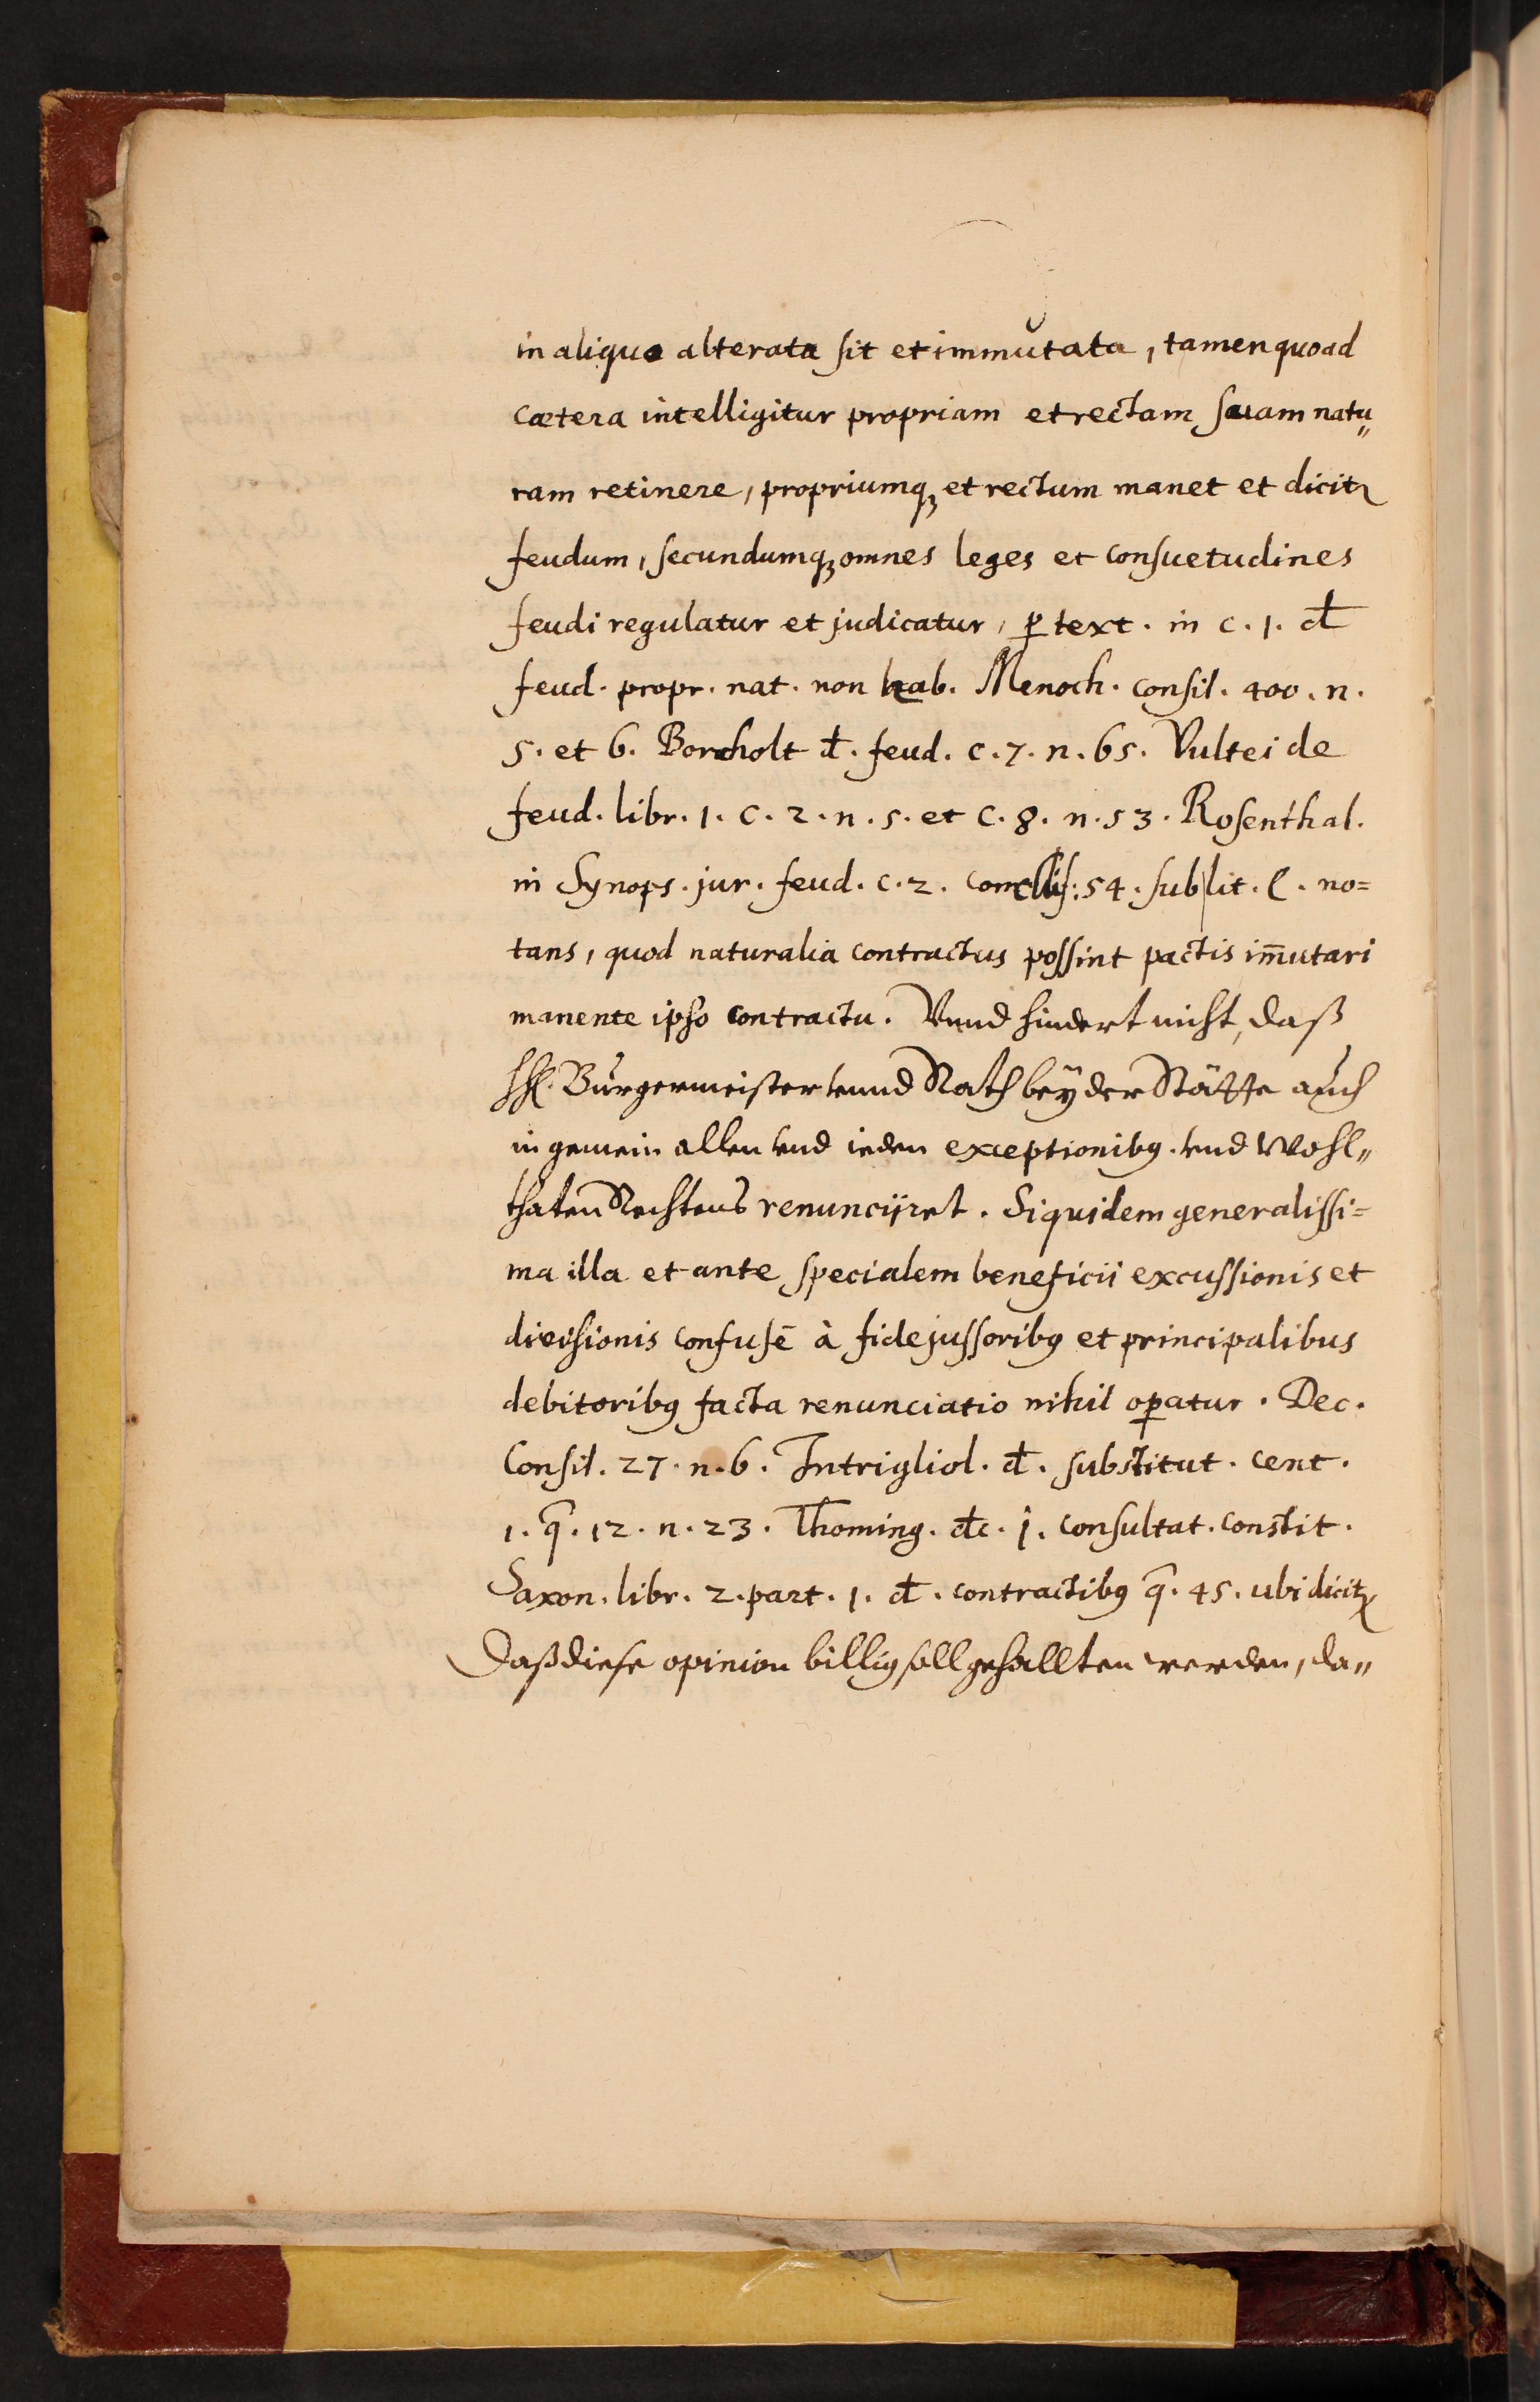 in aliquo alterata sit et immutata, tamen quoad
cætera intelligitur propriam et rectam suam natu„
ram retinere, propriumqꝫ et rectum manet et dicitꝛ
feudum, secundumqꝫ omnes leges et consuetudines
feudi regulatur et judicatur, ꝑ text. in c. 1. đ
feud. propr. nat. non hab. Menoch. consil. 400. n.
5. et 6. Borcholt đ. feud. c. 7. n. 65. Vultei de
feud. libr. 1. c. 2. n. 5. et c. 8. n. 53. Rosenthal.
in Synops. jur. feud. c. 2. conclus: 54. sub lit. l. no=
tans, quod naturalia contractus possint pactis im̄utari
manente ipso contractu. Vnnd hindert nicht, daß
HH. Burgermeister vnnd Rath beyder Stätte auch
in gemein allen vnd ieden exceptionibꝰ. vnd Wohl„
thaten Rechtens renuncijret. Siquidem generalissi=
ma illa et ante specialem beneficii excussionis et
divisionis confusè à fidejussoribꝰ et principalibus
debitoribꝰ facta renunciatio nihil oꝑatur. Dec.
Consil. 27. n. 6. Intrigliol. đ. substitut. cent.
1. q̃. 12. n. 23. Thoming. đc. j. consultat. constit.
Saxon. libr. 2. part. 1. đ. contractibꝰ q̃. 45. ubi dicitꝛ
Daß diese opinion billig soll gehallten werden, da„